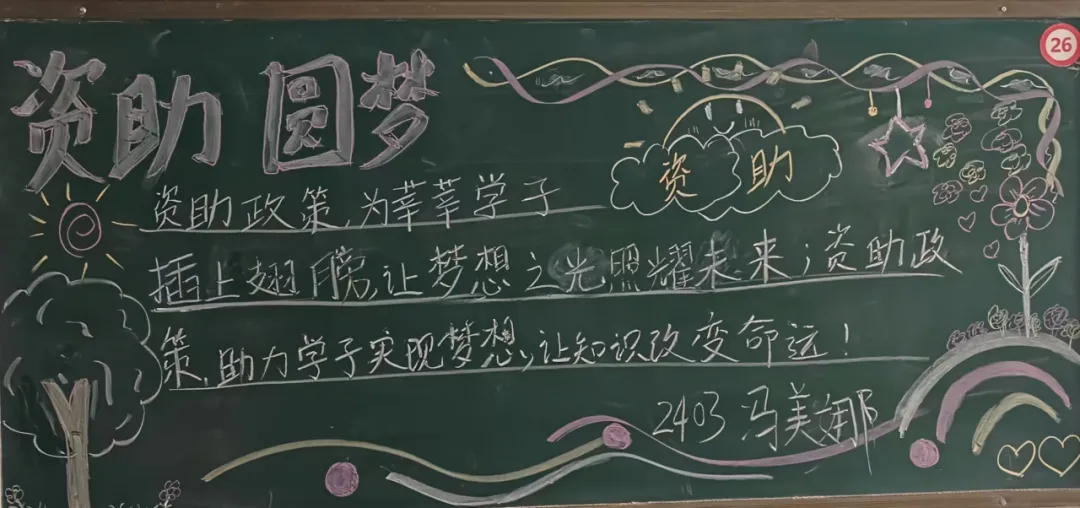 资助 圆梦
26
资助
资助政策,为莘莘学子
插上翅膀,让梦想之光照耀未来;资助政
策,助力学子实现梦想,让知识改变命运!
2403 冯美娜